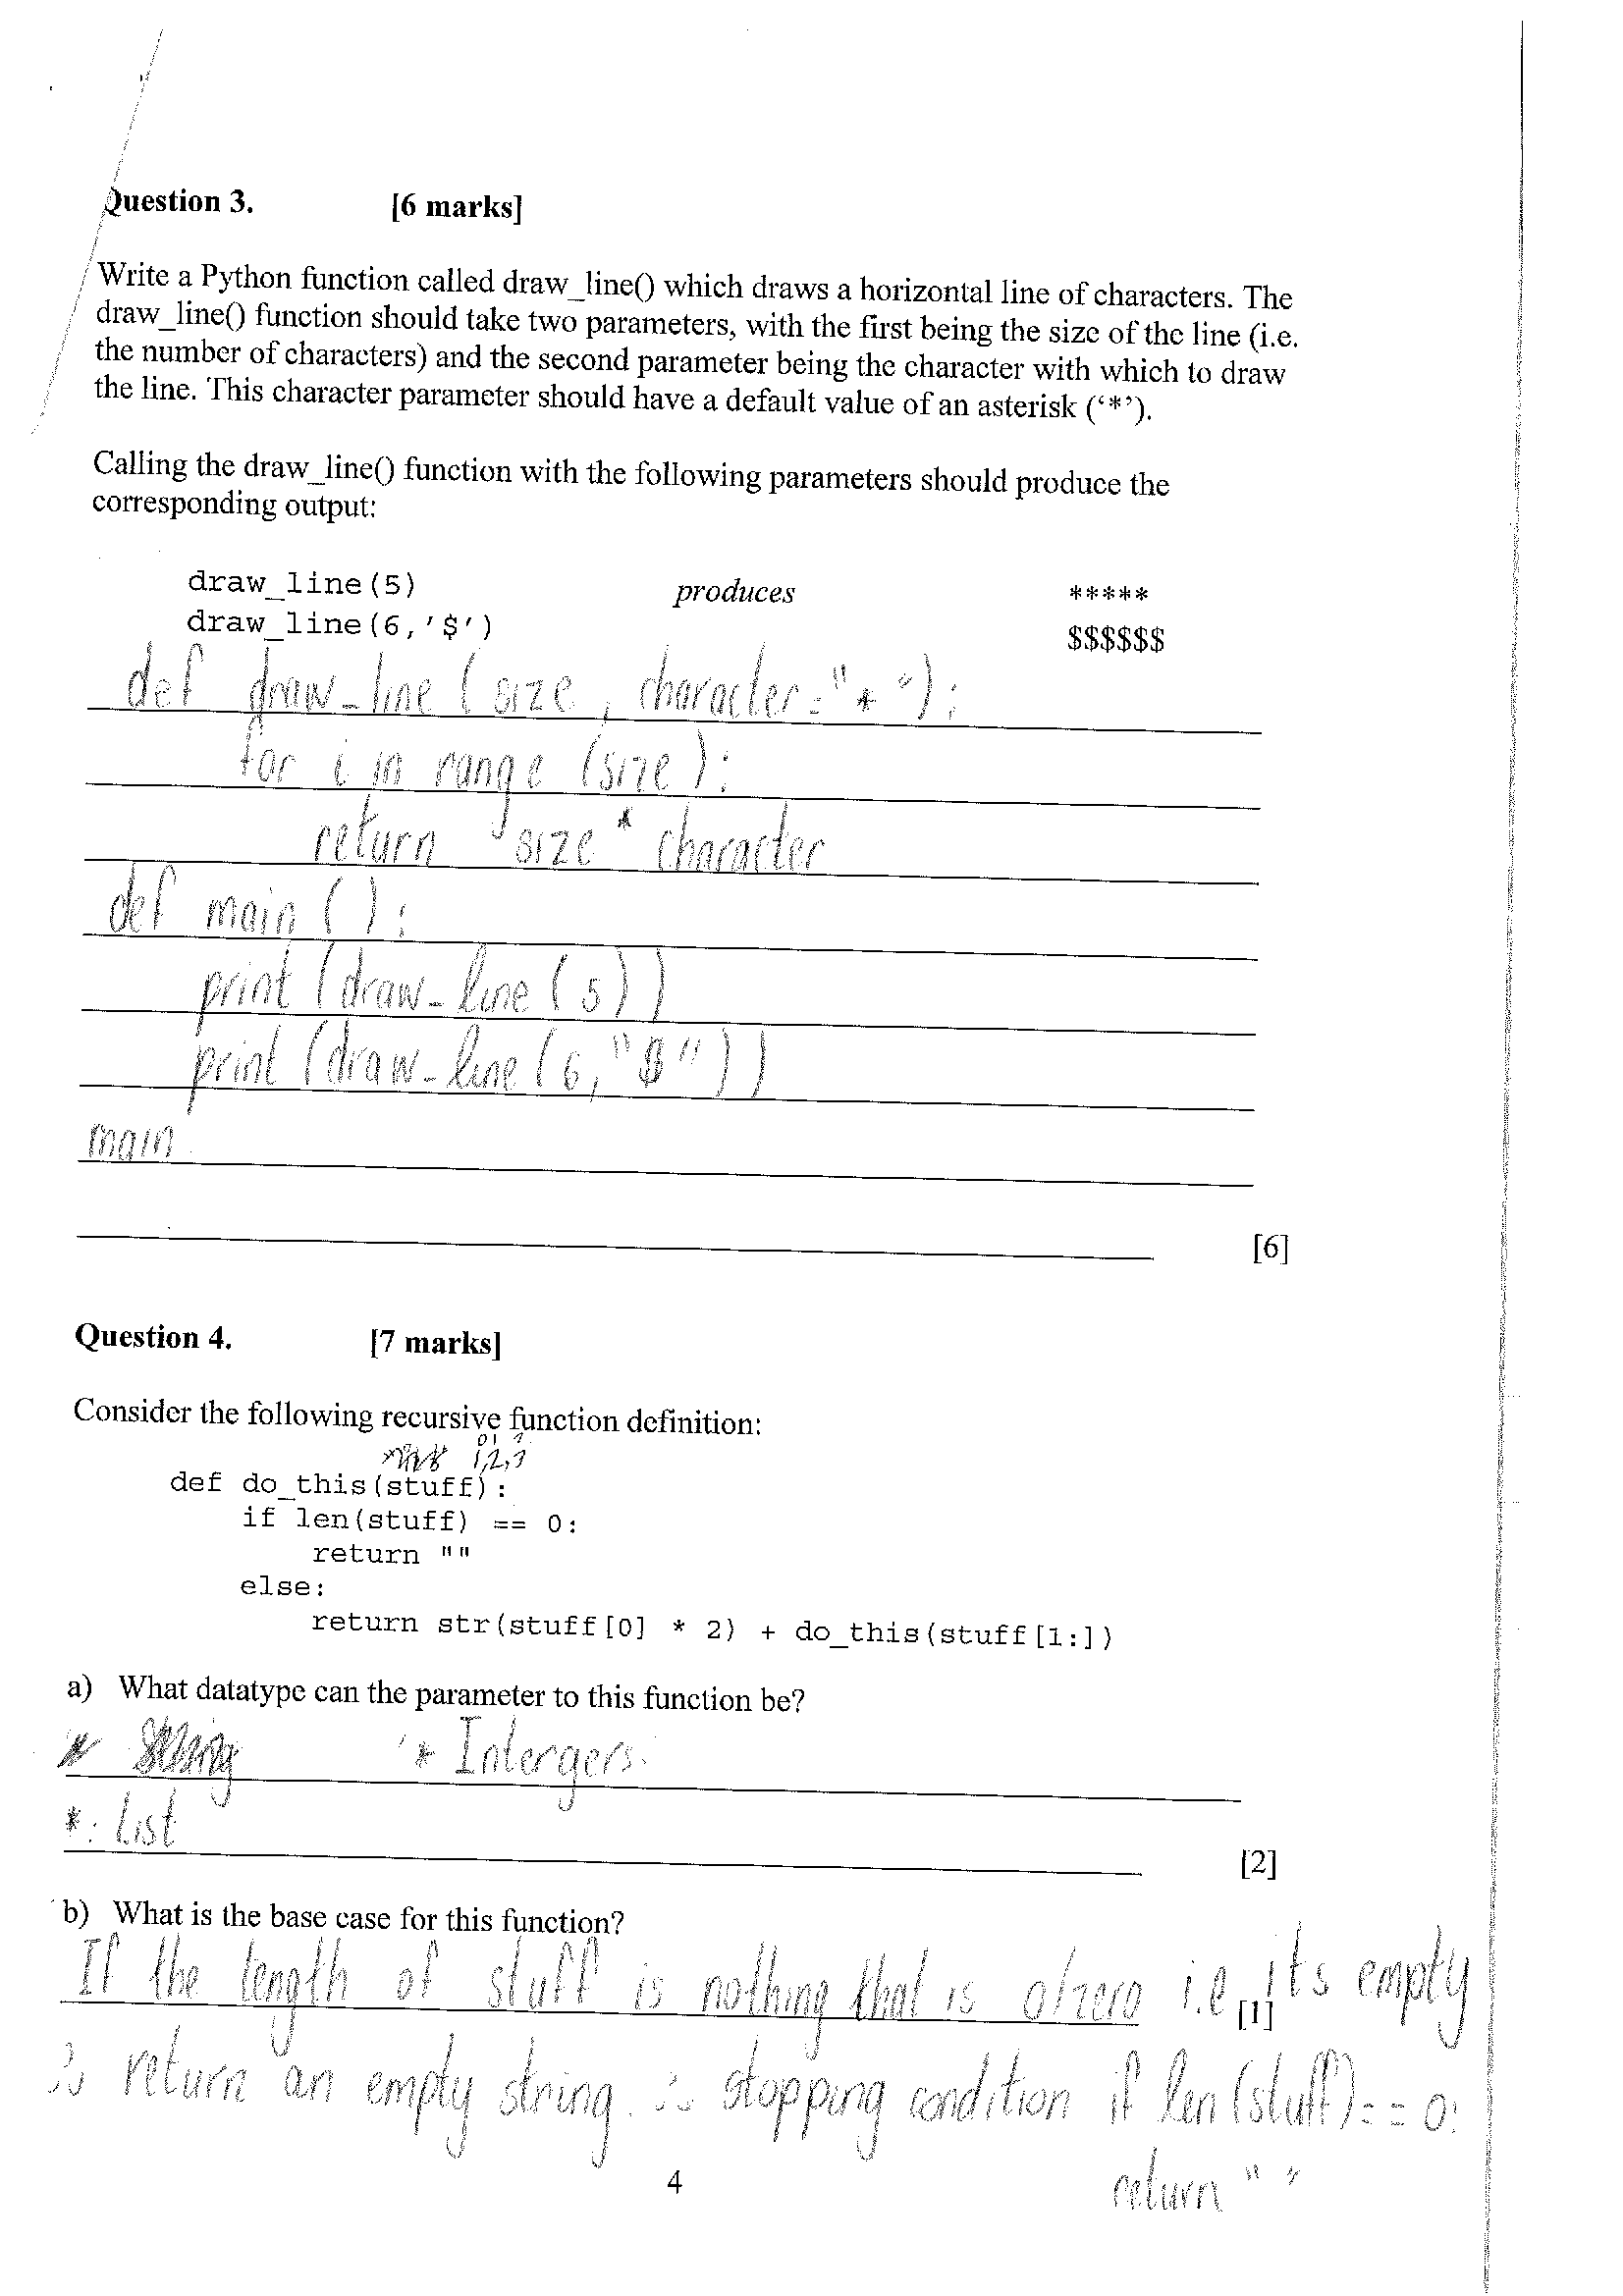 Question 3. [6 marks]
Write a Python function called draw_line() which draws a horizontal line of characters. The
draw_line() function should take two parameters, with the first being the size of the line (i.e.
the number of characters) and the second parameter being the character with which to draw
the line. This character parameter should have a default value of an asterisk (‘*’).
Calling the draw_line() function with the following parameters should produce the
corresponding output:
draw_line(5) produces *****
draw_line(6,'$') $$$$$$
def draw_line (size, character="*"):
for i in range (size):
return size * character
def main ():
print (draw_line (5))
print (draw_line (6, "$"))
main
[6]
Question 4. [7 marks]
Consider the following recursive function definition:
0 1 2
1,2,3
def do_this(stuff):
if len(stuff) == 0:
return ""
else:
return str(stuff[0] * 2) + do_this(stuff[1:])
a) What datatype can the parameter to this function be?
* Intergers.
* : List
[2]
b) What is the base case for this function?
If the length of stuff is nothing that is 0/zero i.e. its empty
[1]
∴ return an empty string. ∴ stopping condition if len(stuff)==0:
return " "
4